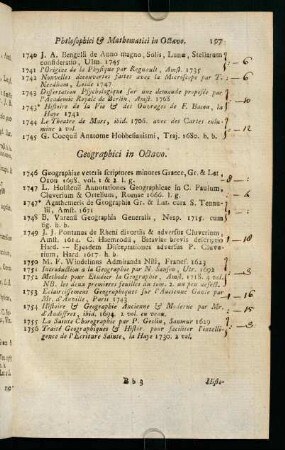 Philosophici & Mathematici in Octavo. 197
1740 J. A. Bengelii de Anno magno, Solis, Lunæ, Stellarum
consideratio, Ulm. 1745 - 6
1741 l'Origine de la Physique par Regnault, Amst. 1735
1742 Nouvelles decouvertes faites avec la Microscope par T.
Needham, Leide 1747
1743 Dissertation Psychologique sur une demande proposée par
l'Academie Royale de Berlin, Amst. 1768
1743* Histoire de la Vie & des Ouvrages de F. Bacon, la
Haye 1742
1744 Le Theatre de Mars, ibid. 1706. avec des Cartes enlu-
minée 2 vol. - 12
1745 G. Cocquii Anatome Hobbesianismi, Traj. 1680. h. b.
Geographici in Octavo.
1746 Geographiæ veteris scriptores minores Græce, Gr. & Lat.
Oxon 1698. vol. 1 & 2 l. g.
1747 L. Holstenii Annotationes Geographicæ in C. Paulum,
Cluverium & Ortelium, Romæ 1666. l. g.
1747* Agathemeris de Geographia Gr. & Lat. cura S. Tennu-
lii, Amst. 1671
1748 B. Varenii Geographia Generalis, Neap. 1715. cum
fig. h. b.
1749 J. J. Pontanus de Rheni divortiis & adversus Cluverium,
Amst. 1614. C. Haemrodii, Batavia brevis descriptio
Hard. — Ejusdem Disceptationes adversus P. Cluve-
rium, Hard. 1617. h. b. - 10
1750 M. P. Windelinus Admiranda Nili, Francf. 1623
1751 Introduction a la Geographie par N. Sanson, Utr. 1692
1752 Methode pour Etudier la Geographie, Amst. 1718. 4 vol.
NB. les deux premieres feuilles du tom. 2. un peu infect.
1753 Eclaircissemens Geographiques sur l'Ancienne Gaule par
Mr. d'Anville, Paris 1743
1754 Histoire & Geographie Ancienne & Moderne par Mr.
d'Audiffret, ibid. 1694. 2 vol. en veau.
1755 La Sainte Chorographie par P. Geslin, Saumur 1629
1756 Traité Geographiques & Histor. pour faciliter l'intelli-
gence de l'Ecriture Sainte, la Haye 1730. 2 vol.
B b 3 Histo-